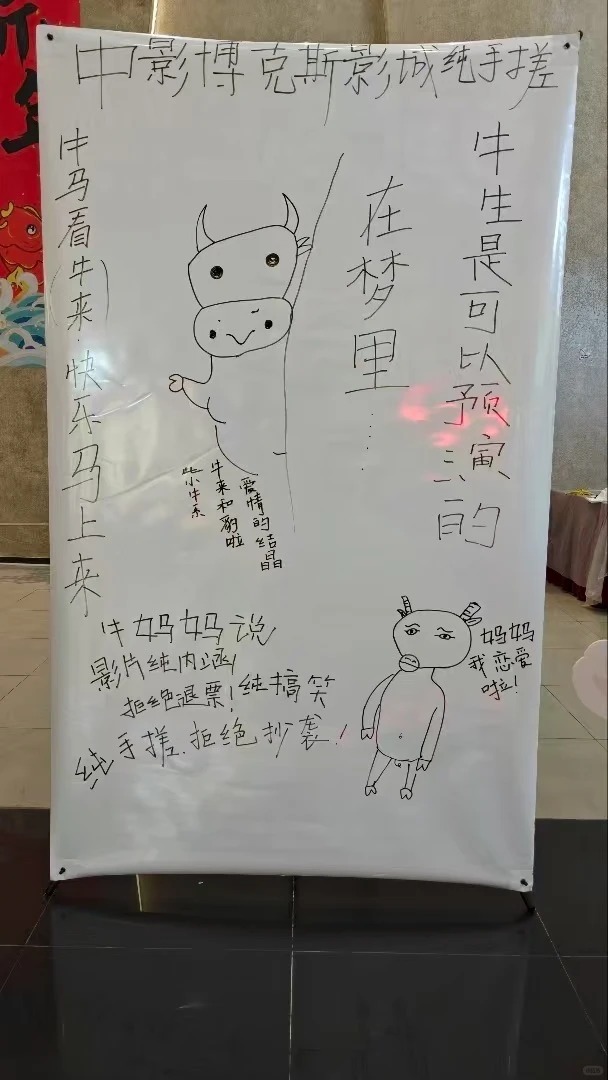 中影博克斯影城纯手搓
牛马看(牛来)快乐马上来
牛生是可以预演的
在梦里......
爱情的结晶
牛来和豹啦
牛妈妈说
影片纯内涵
拒绝退票!纯搞笑
纯手搓.拒绝抄袭!
妈妈
我恋爱
啦!